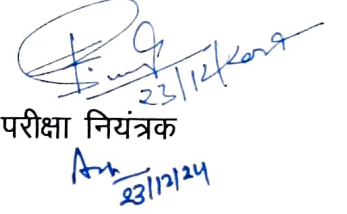 23/12/2024
परीक्षा नियंत्रक
23/12/24